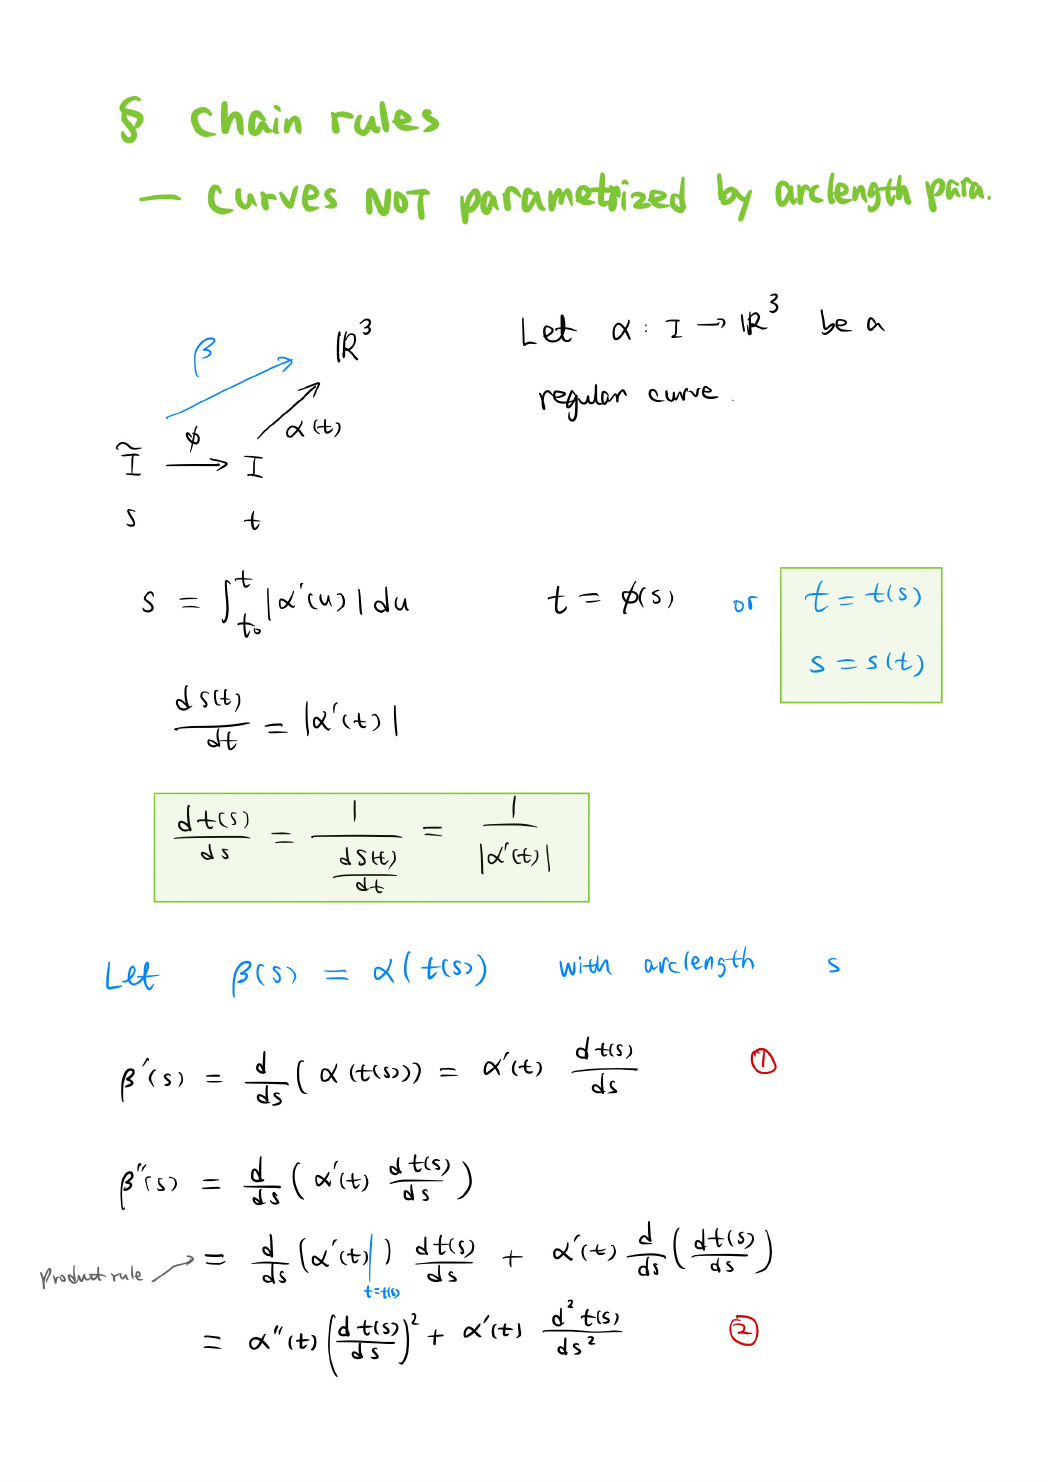 § Chain rules
— Curves NOT parametrized by arclength para.
β ℝ³ Let α : I → ℝ³ be a
α(t) regular curve.
Ĩ ϕ→ I
s t
s = ∫_{t₀}^{t} |α'(u)| du t = ϕ(s) or t = t(s)
s = s(t)
ds(t)/dt = |α'(t)|
dt(s)/ds = 1/(ds(t)/dt) = 1/|α'(t)|
Let β(s) = α(t(s)) with arclength s
β'(s) = d/ds (α(t(s))) = α'(t) dt(s)/ds ①
β''(s) = d/ds (α'(t) dt(s)/ds)
= d/ds (α'(t)|_{t=t(s)}) dt(s)/ds + α'(t) d/ds (dt(s)/ds)
Product rule
= α''(t) (dt(s)/ds)² + α'(t) d²t(s)/ds² ②